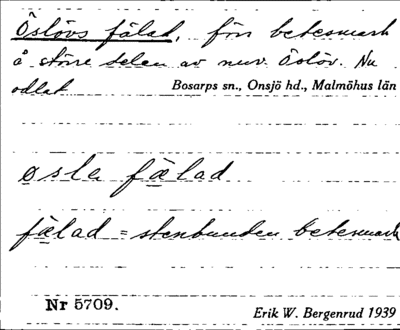 Öslövs fälad, förr betesmark
å större delen av nuv. Öslöv. Nu
odlat Bosarps sn., Onsjö hd., Malmöhus län
øsla fælad
fælad = stenbunden betesmark
Nr 5709.
Erik W. Bergenrud 1939